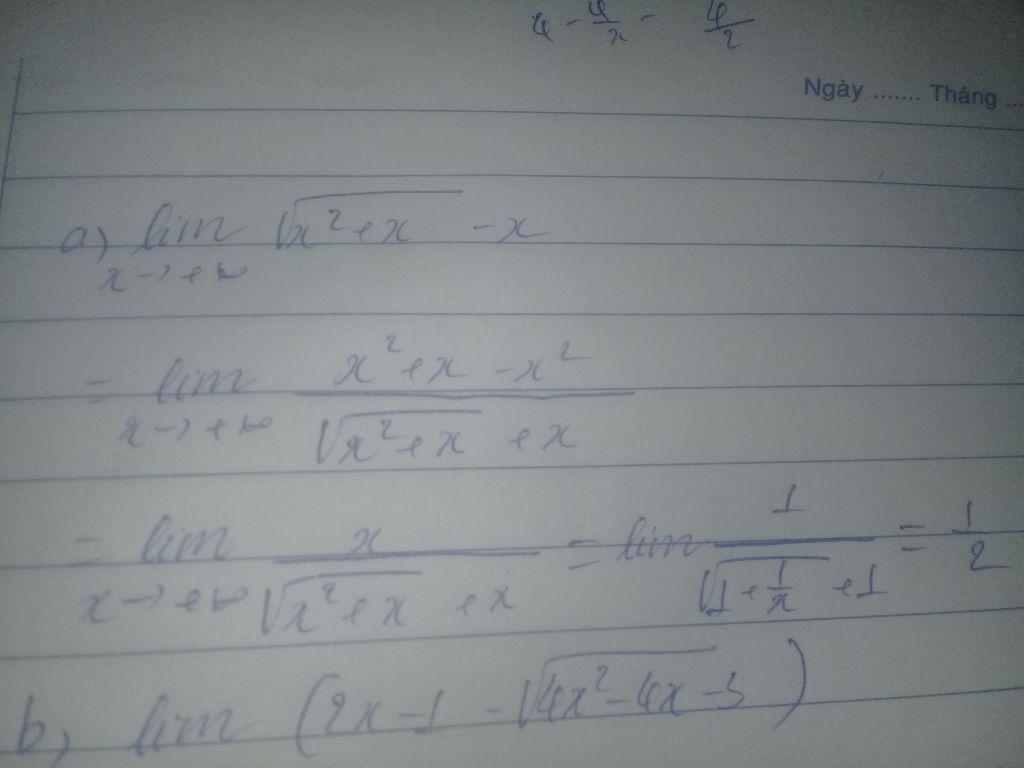 4 - 4/x - 4/2
Ngày ....... Tháng ...
a) lim √(x² + x) - x
x → +∞
= lim (x² + x - x²) / (√(x² + x) + x)
x → +∞
= lim x / (√(x² + x) + x) = lim 1 / (√(1 + 1/x) + 1) = 1/2
x → +∞
b) lim (2x - 1 - √(4x² - 4x - 3))